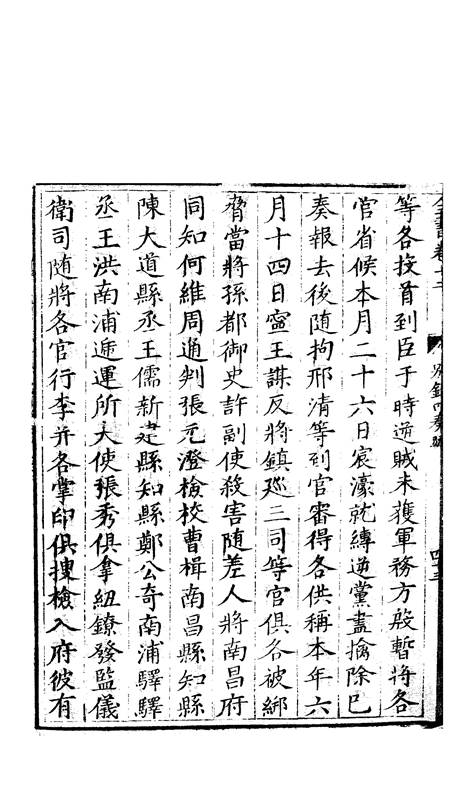 全書卷十二 別錄四奏疏 四十三
等各投首到臣于時逆賊未獲軍務方殷暫將各
官省候本月二十六日宸濠就縛逆黨盡擒除已
奏報去後隨拘邢清等到官審得各供稱本年六
月十四日寧王謀反將鎮廵三司等官俱各被綁
脅當將孫都御史許副使殺害隨差人將南昌府
同知何維周通判張元澄檢校曹楫南昌縣知縣
陳大道縣丞王儒新建縣知縣鄭公奇南浦驛驛
丞王洪南浦遞運所大使張秀俱拿紐鐐發監儀
衛司隨將各官行李并各掌印俱捜檢入府彼有